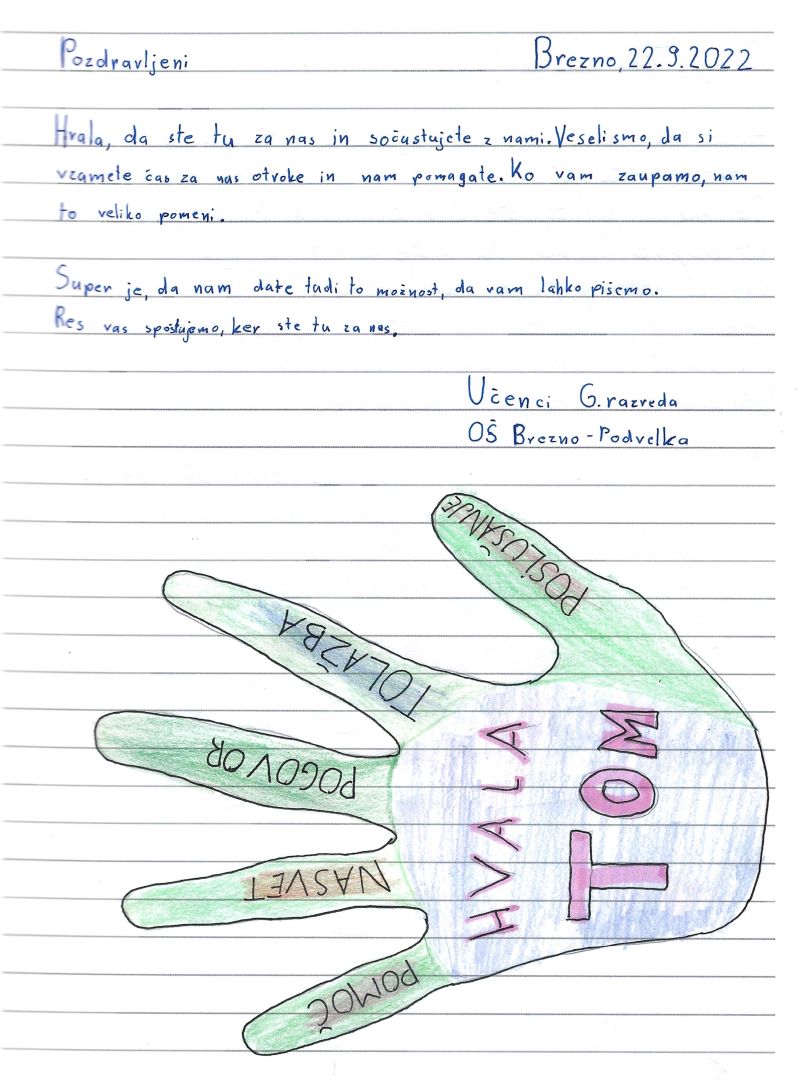 Pozdravljeni
Brezno, 22.9.2022
Hvala, da ste tu za nas in sočustujete z nami. Veseli smo, da si
vzamete čas za nas otroke in nam pomagate. Ko vam zaupamo, nam
to veliko pomeni.
Super je, da nam date tudi to možnost, da vam lahko pišemo.
Res vas spoštujemo, ker ste tu za nas.
Učenci 6. razreda
OŠ Brezno-Podvelka
POSLUŠANJE
TOLAŽBA
POGOVOR
NASVET
POMOČ
HVALA
TOM